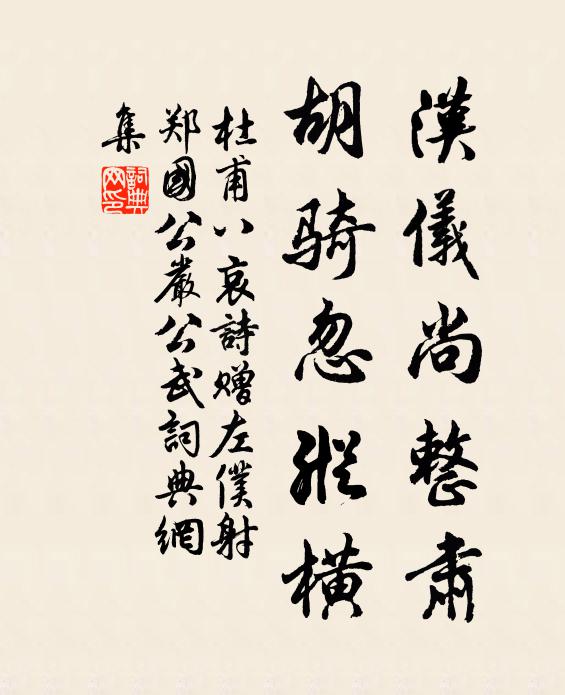 漢儀尚整肅
胡骑忽縱橫
杜甫八哀詩赠左僕射
郑國公嚴公武詞典網
集
詞典網印